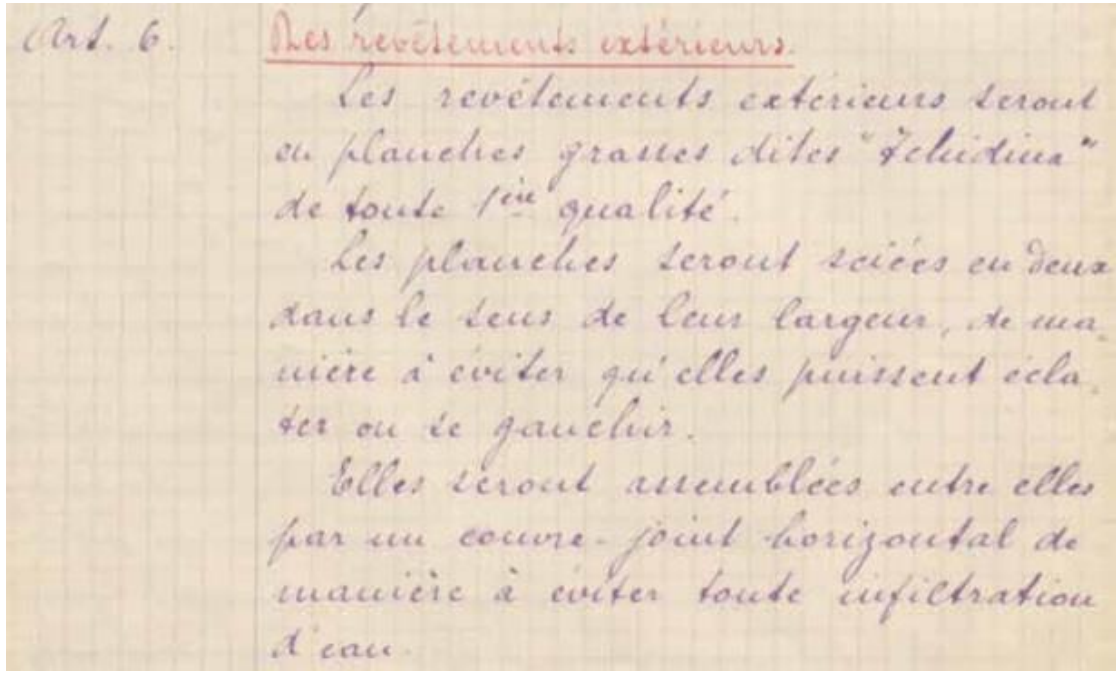 Art. 6. Des revêtements extérieurs.
Les revêtements extérieurs seront
en planches grasses dites "Tchidina"
de toute 1ère qualité.
Les planches seront sciées en deux
dans le sens de leur largeur, de ma-
nière à éviter qu'elles puissent écla-
ter ou se gauchir.
Elles seront assemblées entre elles
par un couvre-joint horizontal de
manière à éviter toute infiltration
d'eau.